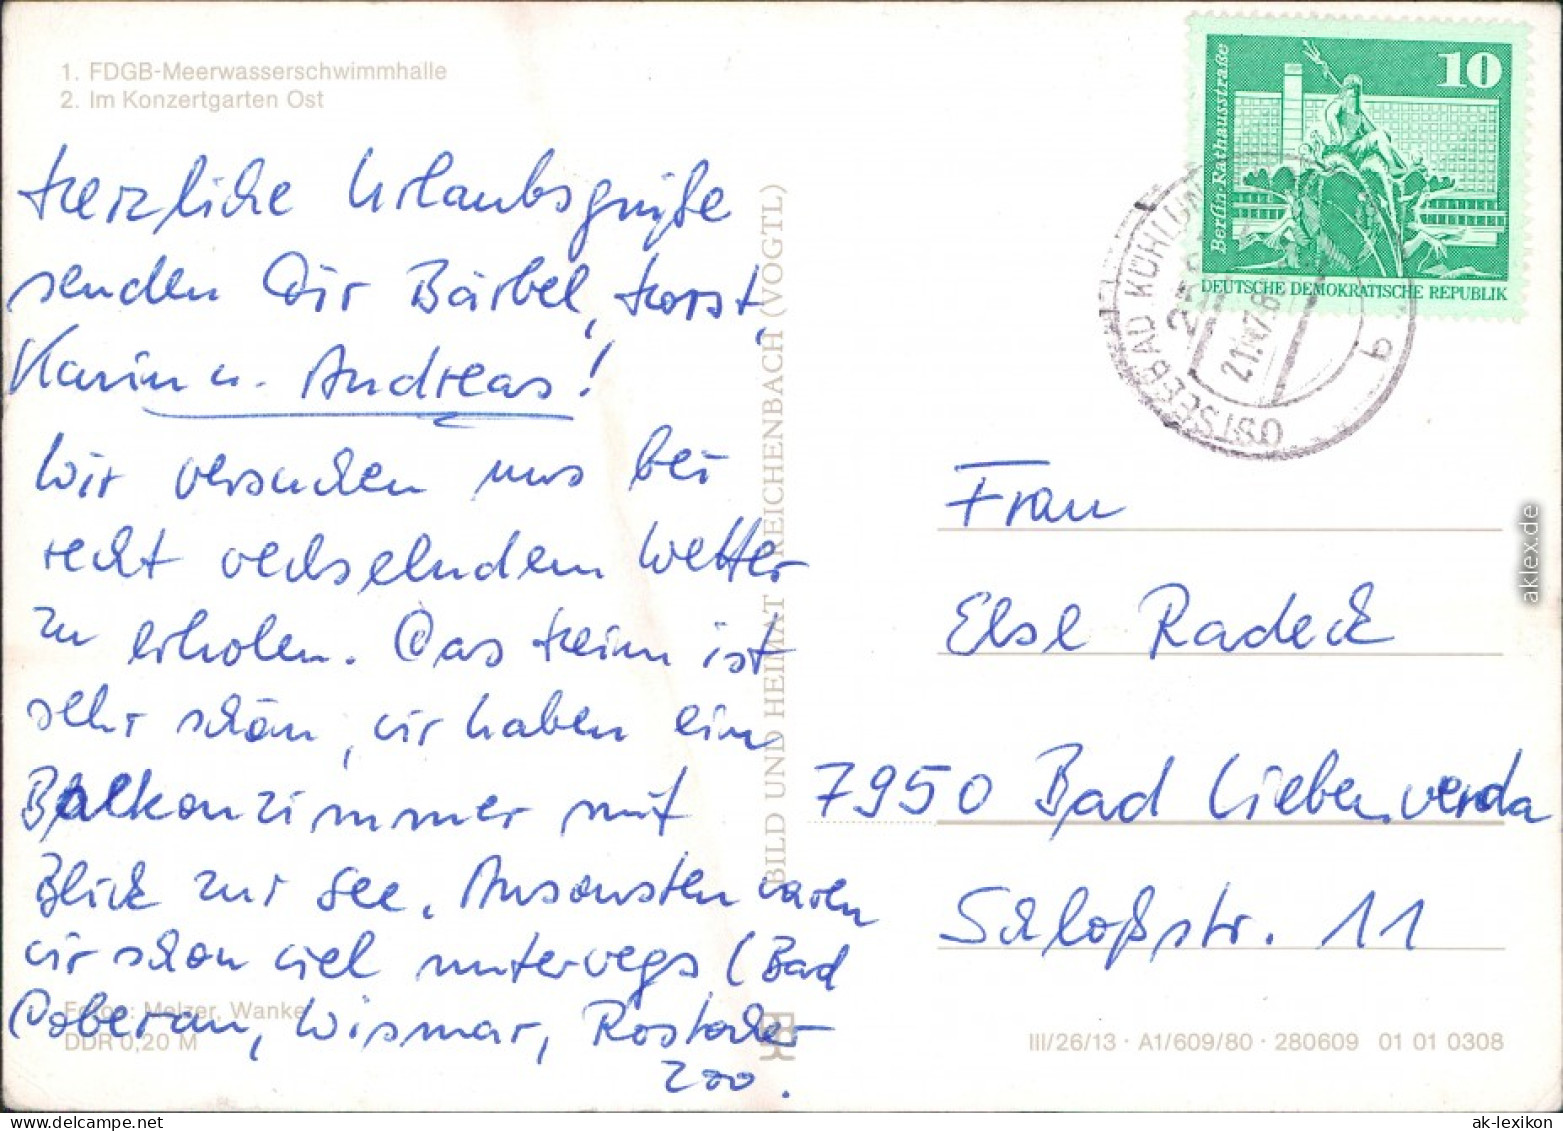 1. FDGB-Meerwasserschwimmhalle
2. Im Konzertgarten Ost
Herzliche Urlaubsgrüße
senden Dir Bärbel, Horst,
Karin u. Andreas!
Wir versuchen uns bei
recht wechselndem Wetter
zu erholen. Das Heim ist
sehr schön, wir haben ein
Balkonzimmer mit
Blick zur See. Ansonsten waren
wir schon viel unterwegs (Bad
Doberan, Wismar, Rostocker
Zoo.
Fotos: Melzer, Wanke
DDR 0,20 M
BILD UND HEIMAT REICHENBACH (VOGTL)
10
Berlin·Rathausstraße
DEUTSCHE DEMOKRATISCHE REPUBLIK
OSTSEEBAD KÜHLUN
b
Frau
Else Radeck
7950 Bad Liebenwerda
Schloßstr. 11
III/26/13 · A1/609/80 · 280609 01 01 0308
aklex.de
ak-lexikon